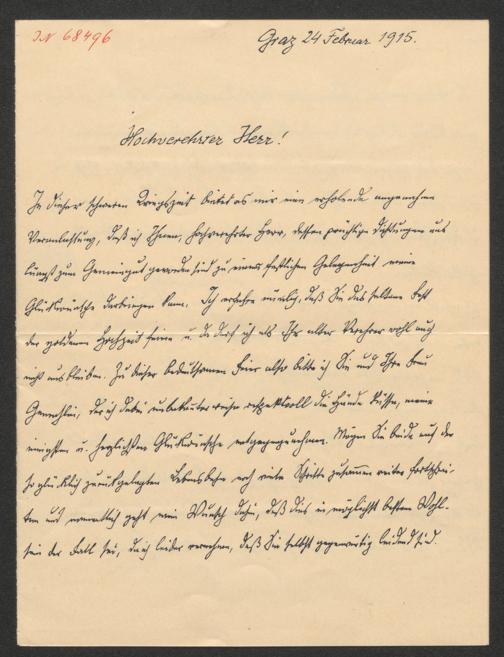 IN 68496
Graz 24 Februar 1915.
Hochverehrter Herr!
In dieser schweren Kriegszeit bietet es mir eine erholende angenehme
Veranlassung, daß ich Ihnen, hochverehrter Herr, dessen prächtige Dichtungen uns
längst zum Gemeingut geworden sind zu einer festlichen Gelegenheit meine
Glückwünsche darbringen kann. Ich erfahre nämlich, daß Sie das seltene Fest
der goldenen Hochzeit feiern u. da darf ich als Ihr alter Verehrer wohl auch
nicht ausbleiben. Zu dieser bedeutsamen Feier also bitte ich Sie und Ihre Frau
Gemahlin, der ich dabei unbekannter weise respektvoll die Hände küsse, meine
innigsten u. herzlichsten Glückwünsche entgegenzunehmen. Mögen Sie beide auf der
so glücklich zurückgelegten Lebensbahn noch viele Schritte zusammen weiter fortschrei-
ten und namentlich geht mein Wunsch dahin, daß dies in möglichst bestem Wohl-
sein der Fall sei, da ich leider vernehme, daß Sie selbst gegenwärtig leidend sind.